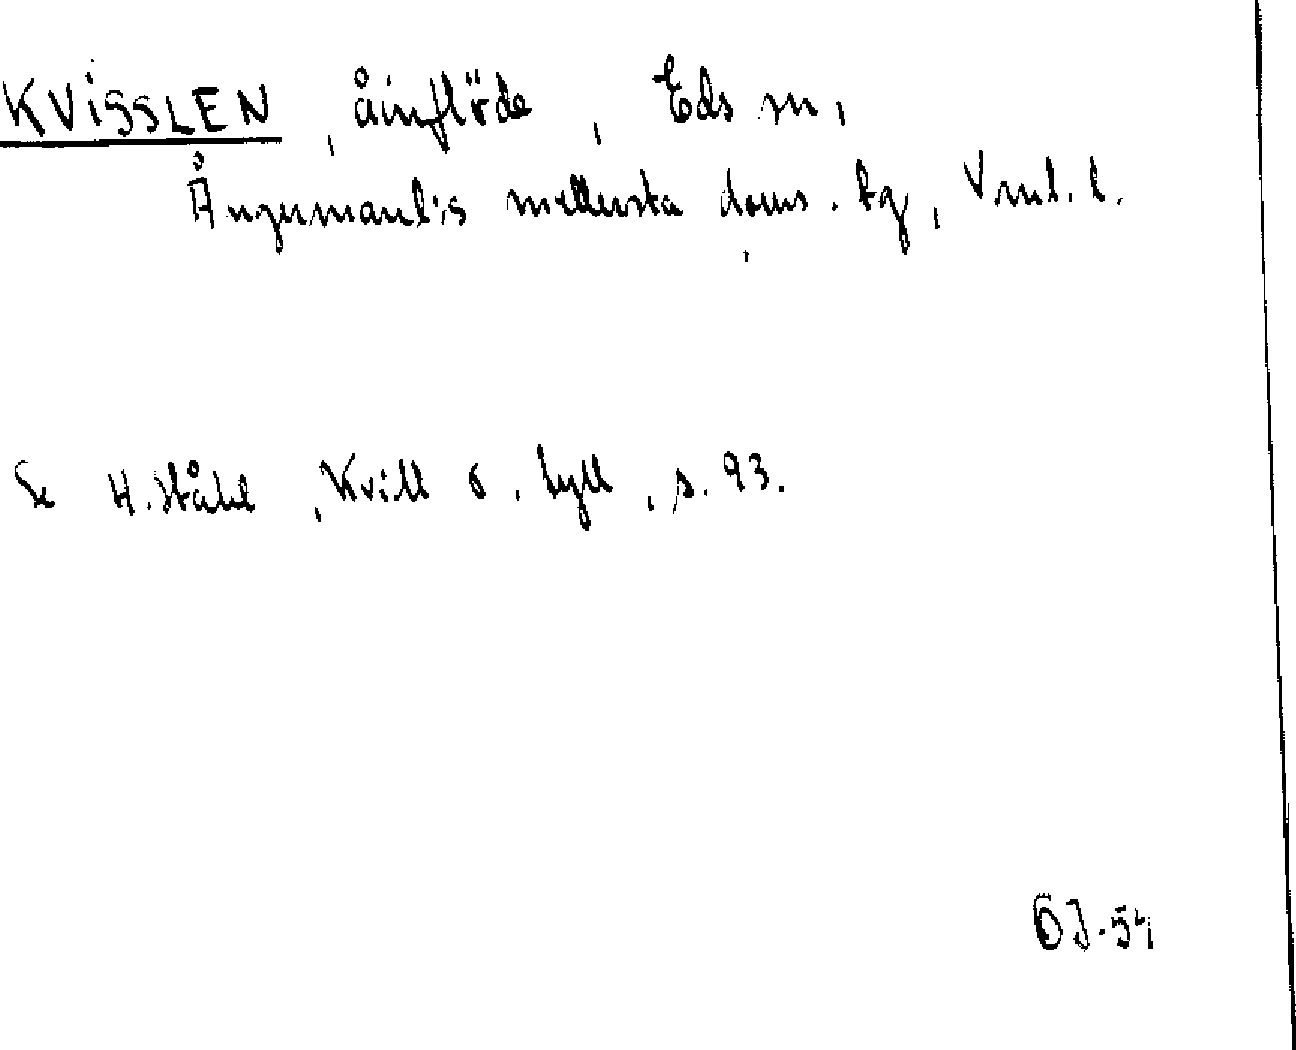 KVISSLEN, åinflöde, Eds sn,
Ångermanl:s mellersta doms. tg, Vnrl. l.
Se H. Ståhl, Kvill o. tyll, s. 93.
ÖJ-54